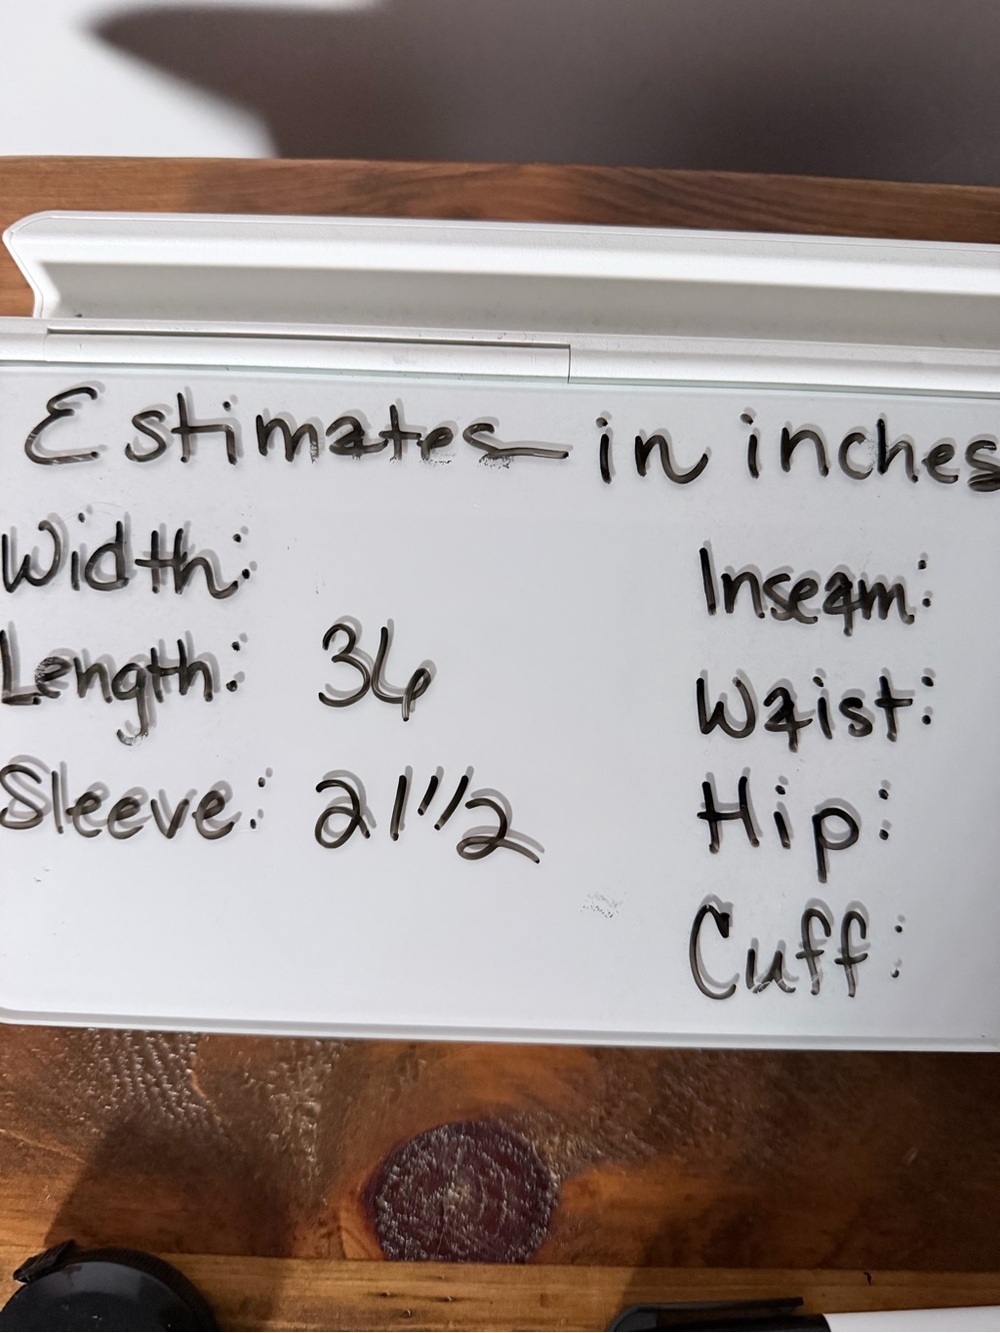 Estimates in inches
Width:
Length: 36
Sleeve: 21 1/2
Inseam:
Waist:
Hip:
Cuff: